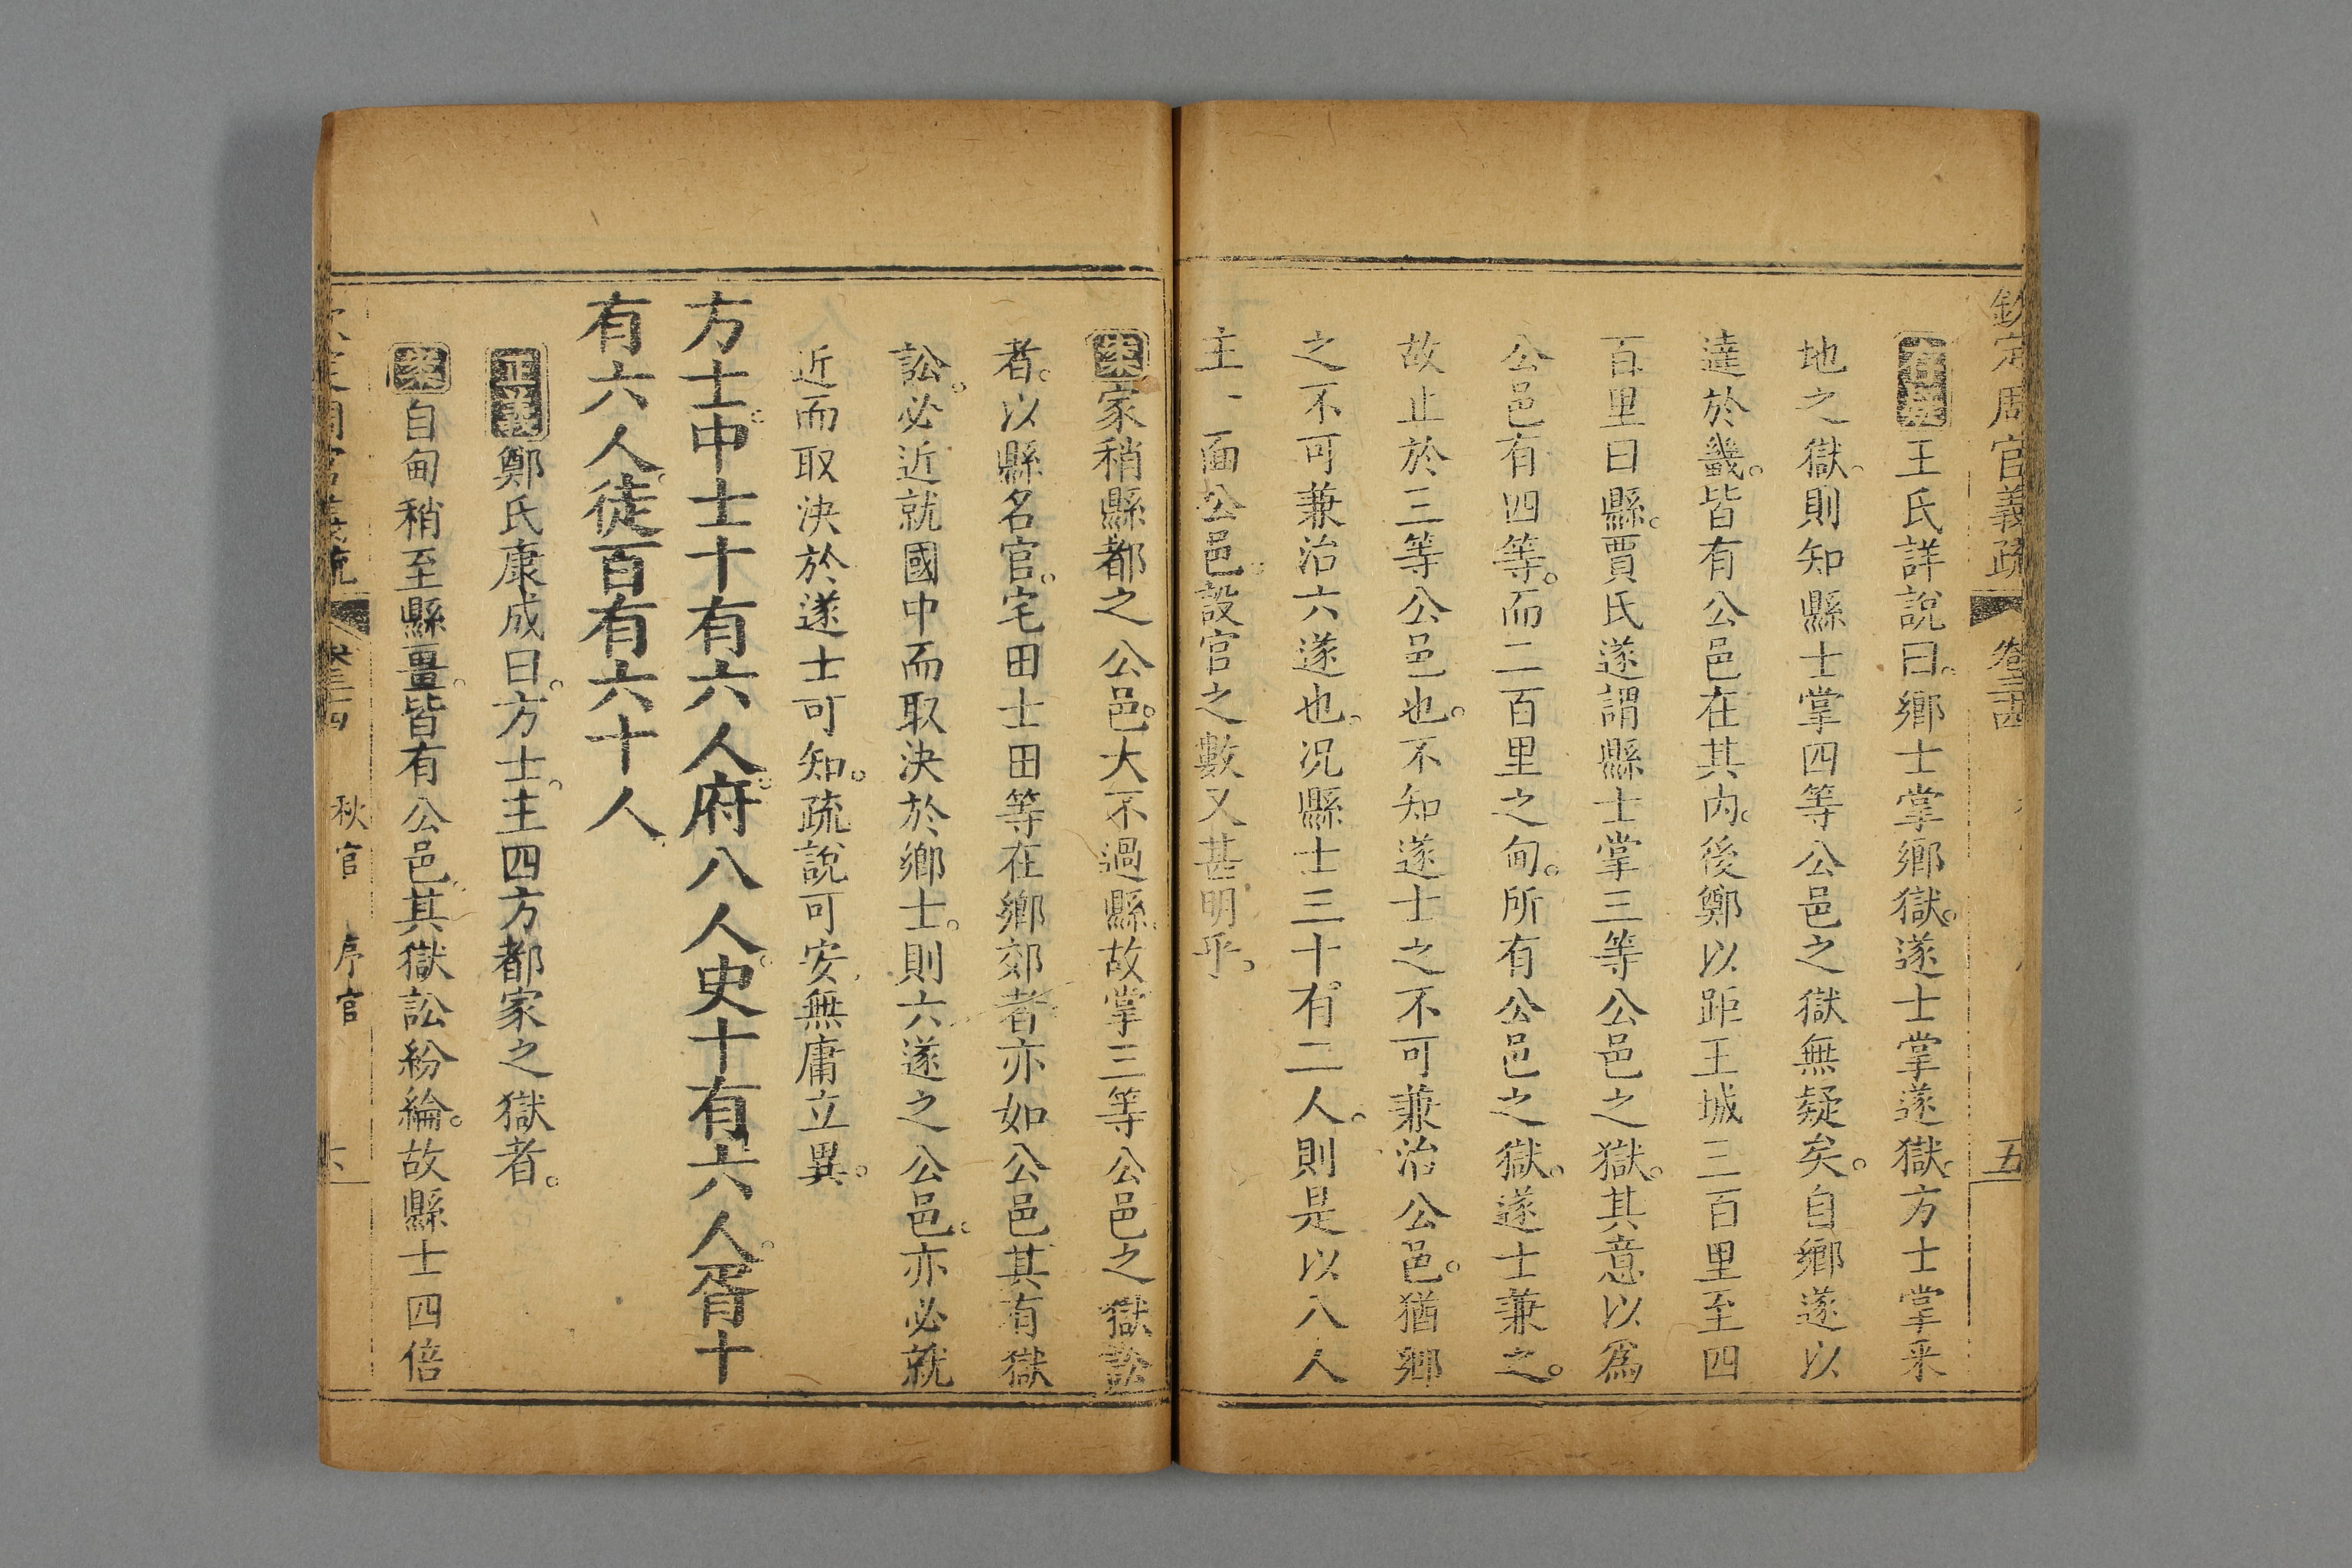 欽定周官義疏 卷三十四 五
存疑王氏詳說曰。鄉士掌鄉獄。遂士掌遂獄。方士掌采
地之獄。則知縣士掌四等公邑之獄無疑矣。自鄉遂以
達於畿。皆有公邑在其內。後鄭以距王城三百里至四
百里曰縣。賈氏遂謂縣士掌三等公邑之獄。其意以爲
公邑有四等。而二百里之甸。所有公邑之獄。遂士兼之。
故止於三等公邑也。不知遂士之不可兼治公邑。猶鄉
之不可兼治六遂也。况縣士三十。有二人。則是以八人
主一面公邑。設官之數又甚明乎。
案家稍縣都之公邑。大不過縣。故掌三等公邑之獄訟
者。以縣名官。宅田士田等在鄉郊者亦如公邑其有獄
訟。必近就國中而取決於鄉士。則六遂之公邑。亦必就
近而取決於遂士可知。疏說可安。無庸立異。
方士。中士十有六人。府八人。史十有六人。胥十
有六人。徒百有六十人
正義鄭氏康成曰。方士。主四方都家之獄者。
案自甸稍至縣畺。皆有公邑。其獄訟紛綸。故縣士四倍
欽定周官義疏 卷三十四 秋官 序官 六